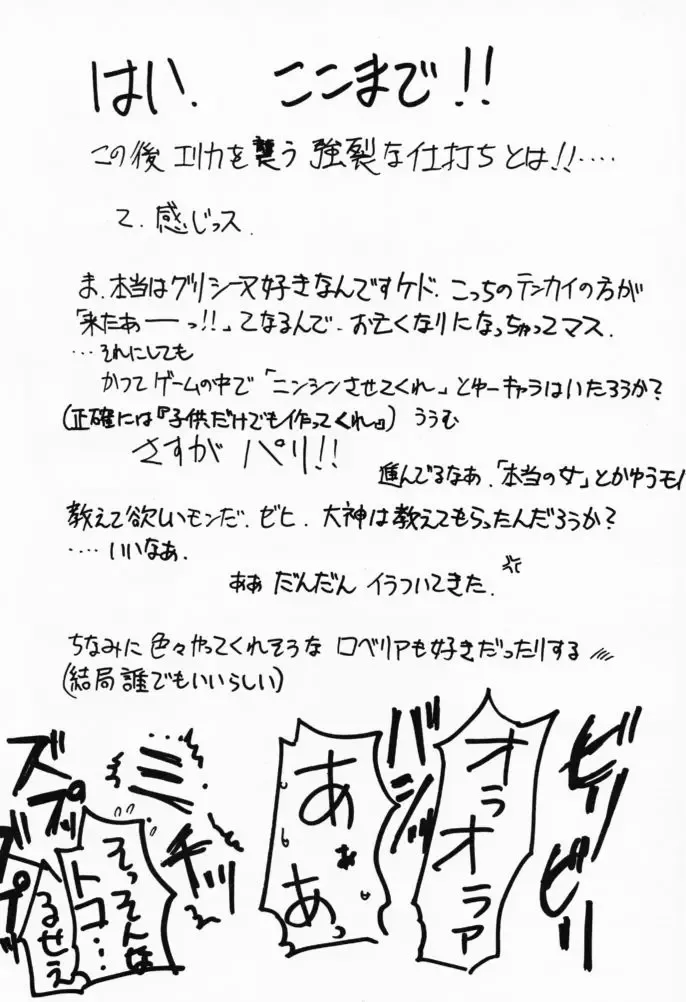 はい、ここまで!!
この後エリカを襲う強裂な仕打ちとは!!‥‥
て、感じっス、
ま、本当はグリシーヌ好きなんですケド、こっちのテンカイの方が
「来たあーっ!!」てなるんで、お亡くなりになっちゃってマス、
‥‥それにしても
かつてゲームの中で「ニンシンさせてくれ」とゆーキャラはいたろうか?
(正確には『子供だけでも作ってくれ』) ううむ
さすが パリ!!
進んでるなあ、「本当の女」とかゆうモノ
教えて欲しいモンだ、ゼヒ、大神は教えてもらったんだろうか?
‥‥いいなあ、
ああ だんだん イラついてきた、
ちなみに色々やってくれそうな ロベリアも好きだったりする
(結局誰でもいいらしい)
ビリ
ビリ
オラオラァ
バシ
あぁあっ
ミチッ
そっそんな
トコ‥‥
るせえ
ズプ
ズプッ